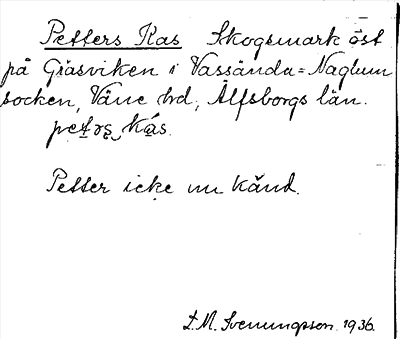 Petters Kas Skogsmark öst
på Gräsviken i Vassända=Naglum
socken, Väne hd, Älfsborgs län.
petərs kás.
Petter icke nu känd.
L. M. Svenungsson. 1936.